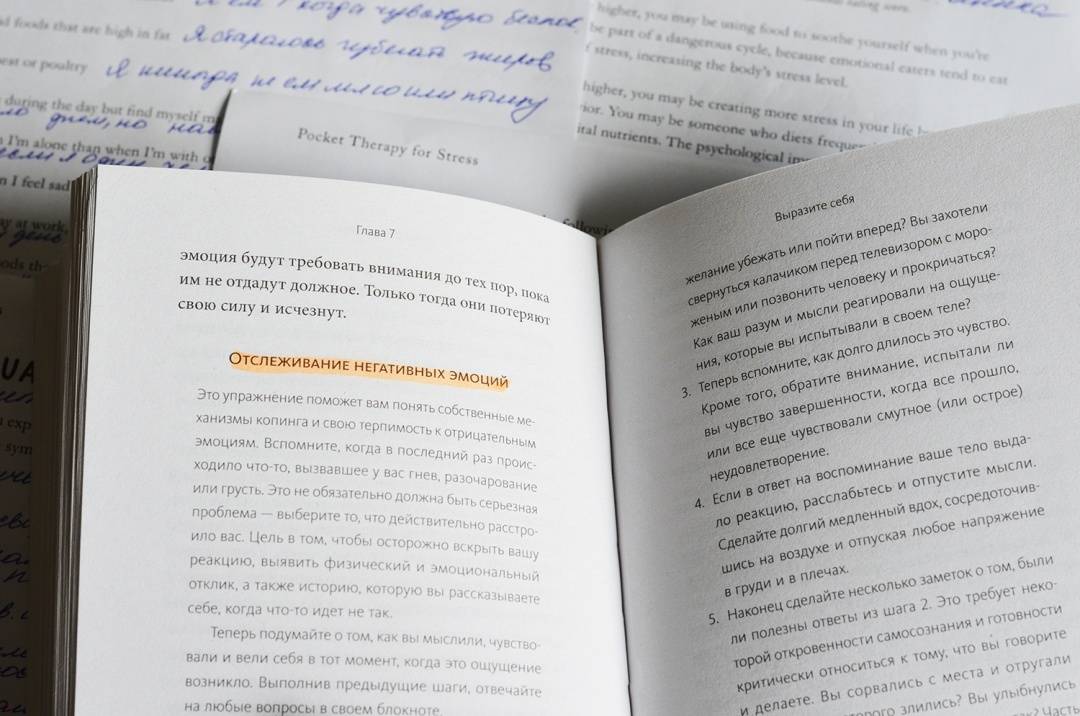 я ем, когда чувствую
foods that are high in fat Я стараюсь избегать жиров
or poultry Я никогда не ем мясо или птицу
during the day but find myself
днем, но
I'm alone than when I'm with
I feel sad
at work,
день
higher, you may be using food to soothe yourself when you're
be part of a dangerous cycle, because emotional eaters tend to eat
stress, increasing the body's stress level.
higher, you may be creating more stress in your life
You may be someone who diets
nutrients. The psychological
Pocket Therapy for Stress
Глава 7
эмоция будут требовать внимания до тех пор, пока
им не отдадут должное. Только тогда они потеряют
свою силу и исчезнут.
Отслеживание негативных эмоций
Это упражнение поможет вам понять собственные ме-
ханизмы копинга и свою терпимость к отрицательным
эмоциям. Вспомните, когда в последний раз проис-
ходило что-то, вызвавшее у вас гнев, разочарование
или грусть. Это не обязательно должна быть серьезная
проблема — выберите то, что действительно расстро-
ило вас. Цель в том, чтобы осторожно вскрыть вашу
реакцию, выявить физический и эмоциональный
отклик, а также историю, которую вы рассказываете
себе, когда что-то идет не так.
Теперь подумайте о том, как вы мыслили, чувство-
вали и вели себя в тот момент, когда это ощущение
возникло. Выполнив предыдущие шаги, отвечайте
на любые вопросы в своем блокноте.
Выразите себя
желание убежать или пойти вперед? Вы захотели
свернуться калачиком перед телевизором с моро-
женым или позвонить человеку и прокричаться?
Как ваш разум и мысли реагировали на ощуще-
ния, которые вы испытывали в своем теле?
3. Теперь вспомните, как долго длилось это чувство.
Кроме того, обратите внимание, испытали ли
вы чувство завершенности, когда все прошло,
или все еще чувствовали смутное (или острое)
неудовлетворение.
4. Если в ответ на воспоминание ваше тело выда-
ло реакцию, расслабьтесь и отпустите мысли.
Сделайте долгий медленный вдох, сосредоточив-
шись на воздухе и отпуская любое напряжение
в груди и в плечах.
5. Наконец сделайте несколько заметок о том, были
ли полезны ответы из шага 2. Это требует неко-
торой откровенности самосознания и готовности
критически относиться к тому, что вы говорите
и делаете. Вы сорвались с места и отругали
которого злились? Вы улыбнулись
Часть